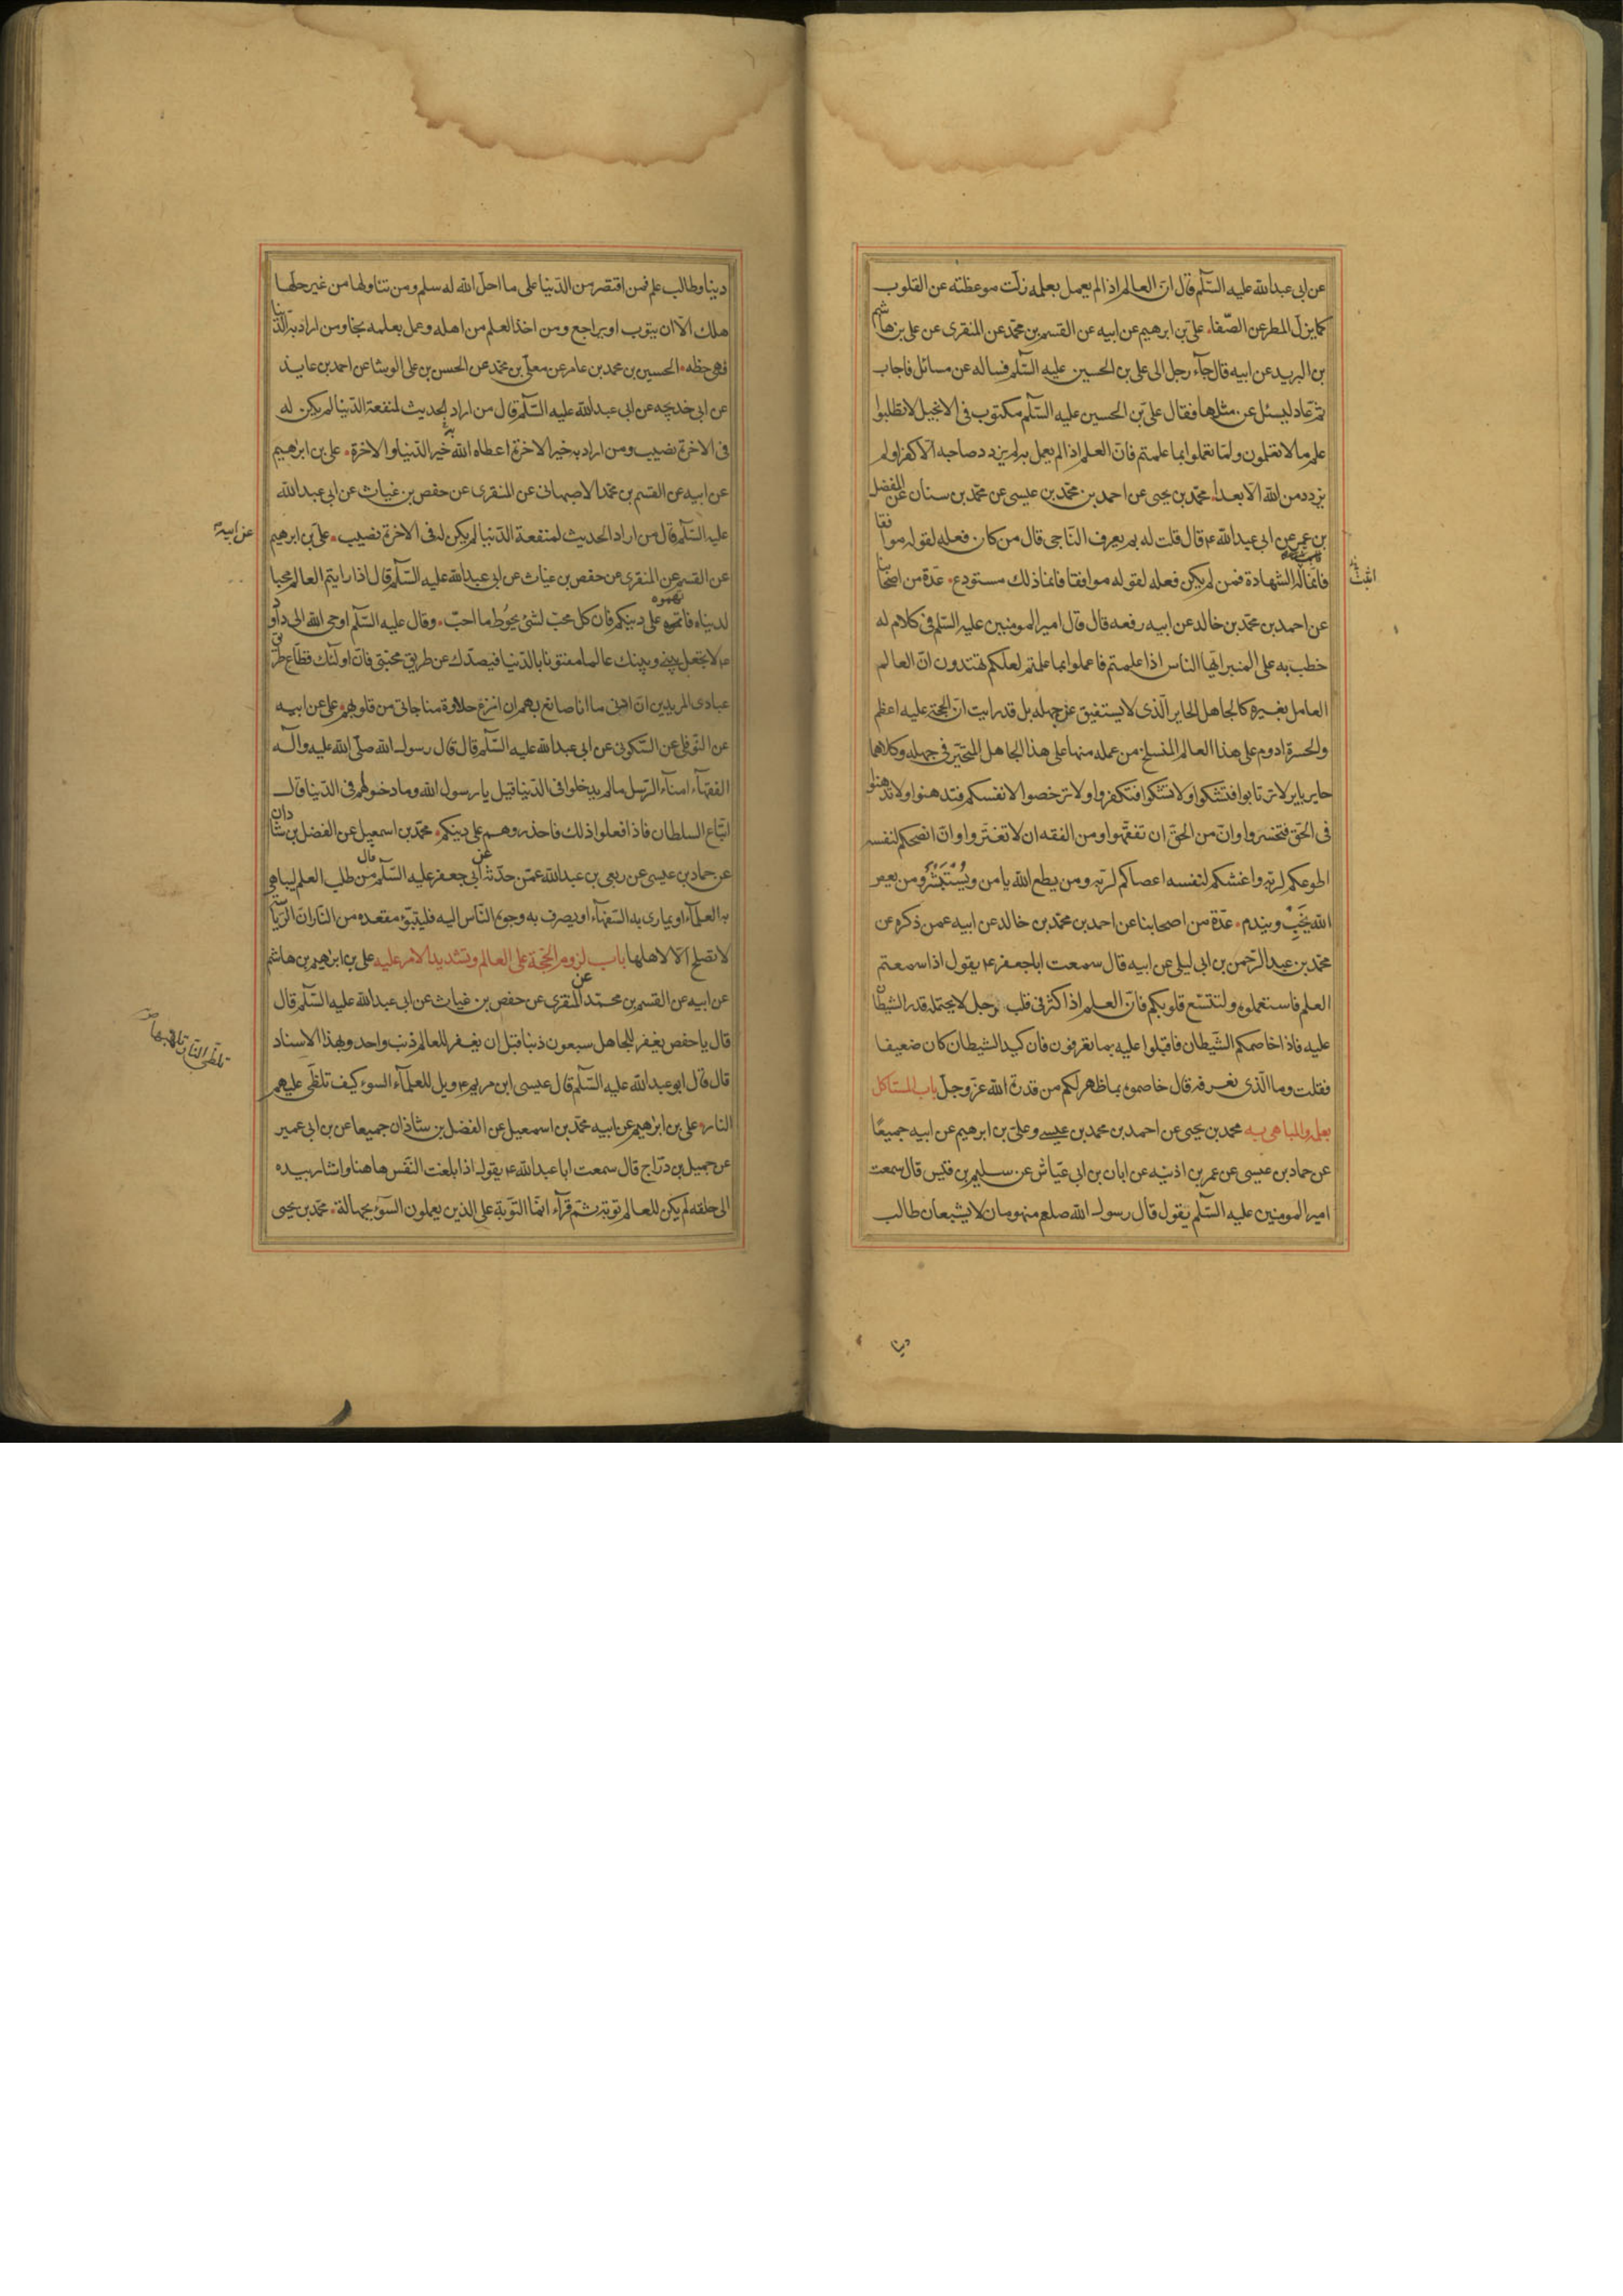 عن ابی عبدالله علیه السّلم قال انّ العالم اذا لم یعمل بعلمه زلّت موعظته عن القلوب
کما یزلّ المطر عن الصّفا۰ علیّ بن ابرهیم عن ابیه عن القسم بن محمّد عن المنقری عن علی بن هاشم
بن البرید عن ابیه قال جآء رجل الی علی بن الحسین علیه السّلم فساله عن مسائل فاجاب
ثمّ عاد لیسئل عن مثلها فقال علیّ بن الحسین علیه السّلم مکتوب فی الانجیل لا تطلبوا
علم ما لا تعلمون و لمّا تعملوا بما علمتم فانّ العلم اذا لم یعمل به لم یزدد صاحبه الّا کفرا و لم
یزدد من الله الّا بعدا۰ محمّد بن یحیی عن احمد بن محمّد بن عیسی عن محمّد بن سنان عن المفضل
بن عمر عن ابی عبدالله ع قال قلت له بم یعرف النّاجی قال من کان فعله لقوله موافقا
فانّما له الشهادة فمن لم یکن فعله لقوله موافقا فانما ذلك مستودع۰ عدّة من اصحابنا
عن احمد بن محمّد بن خالد عن ابیه رفعه قال قال امیر المومنین علیه السّلم فی کلام له
خطب به علی المنبر ایّها الناس اذا علمتم فاعملوا بما علمتم لعلکم تهتدون انّ العالم
العامل بغیره کالجاهل الحایر الّذی لا یستفیق عن جهله بل قد رایت انّ الحجّة علیه اعظم
والحسرة ادوم علی هذا العالم المنسلخ من علمه منها علی هذا الجاهل المتحیّر فی جهله وکلاهما
حایر بایر لا ترتابوا فتشکوا ولا تشکوا فتکفروا ولا ترخصوا لانفسکم فتدهنوا ولا تدهنوا
فی الحقّ فتخسروا وانّ من الحقّ ان تفقّهوا ومن الفقه ان لا تغترّوا وانّ انصحکم لنفسه
اطوعکم لربّه واغشکم لنفسه اعصاکم لربّه ومن یطع الله یامن ویستبشر ومن یعص
الله یخب ویندم۰ عدّة من اصحابنا عن احمد بن محمّد بن خالد عن ابیه عمن ذکره عن
محمّد بن عبد الرّحمن بن ابی لیلی عن ابیه قال سمعت ابا جعفر ع یقول اذا سمعتم
العلم فاستعملوه ولتتسّع قلوبکم فانّ العلم اذا کثر فی قلب رجل لا یحتمله قدر الشیطان
علیه فاذا خاصمکم الشّیطان فاقبلوا علیه بما تعرفون فان کید الشیطان کان ضعیفا
فقلت وما الّذی نعرفه قال خاصموه بما ظهر لکم من قدرة الله عزّ وجلّ باب المستاکل
بعلمه والمباهی به محمد بن یحیی عن احمد بن محمد بن عیسی وعلیّ بن ابرهیم عن ابیه جمیعًا
عن حماد بن عیسی عن عمر بن اذینه عن ابان بن ابی عیّاش عن سلیم بن قیس قال سمعت
امیر المومنین علیه السّلم یقول قال رسول الله صلعم منهومان لا یشبعان طالب
دنیا
دنیا وطالب علم فمن اقتصر من الدّنیا علی ما احلّ الله له سلم ومن تناولها من غیر حلّها
هلك الّا ان یتوب او یراجع ومن اخذ العلم من اهله وعمل بعلمه نجا ومن اراد به الدّنیا
فهی حظه۰ الحسین بن محمد بن عامر عن معلّی بن محمّد عن الحسن بن علی الوشا عن احمد بن عایذ
عن ابی خدیجه عن ابی عبدالله علیه السّلم قال من اراد الحدیث لمنفعة الدّنیا لم یکن له
فی الاخرة نصیب ومن اراد به خیر الاخرة اعطاه الله خیر الدّنیا والاخرة۰ علی بن ابرهیم
عن ابیه عن القسم بن محمّد الاصبهانی عن المنقری عن حفص بن غیاث عن ابی عبدالله
علیه السّلم قال من اراد الحدیث لمنفعة الدّنیا لم یکن له فی الاخرة نصیب۰ علیّ بن ابرهیم
عن ابیه
عن القسم عن المنقری عن حفص بن غیاث عن ابی عبدالله علیه السّلم قال اذا رایتم العالم محبا
لدنیاه فاتهموه علی دینکم فان کل محبّ لشئ یحوط ما احبّ۰ وقال علیه السّلم اوحی الله الی داود
ع لا تجعل بینی وبینك عالما مفتونا بالدّنیا فیصدّك عن طریق محبّتی فانّ اولئك قطّاع طریق
عبادی المریدین انّ ادنی ما انا صانع بهم ان انزع حلاوة مناجاتی من قلوبهم۰ علی عن ابیه
عن النّوفلی عن السّکونی عن ابی عبدالله علیه السّلم قال قال رسول الله صلّی الله علیه وآله
الفقهآء امنآء الرّسل ما لم یدخلوا فی الدّنیا قیل یا رسول الله وما دخولهم فی الدّنیا قال
اتّباع السلطان فاذا فعلوا ذلك فاحذروهم علی دینکم۰ محمّد بن اسمعیل عن الفضل بن شاذان
عن حماد بن عیسی عن ربعی بن عبدالله عمّن حدّثه عن ابی جعفر علیه السّلم قال من طلب العلم لیباهی
به العلمآء او یماری به السّفهآء او یصرف به وجوه النّاس الیه فلیتبوّء مقعده من النّار انّ الرّیاسة
لا تصلح الّا لاهلها باب لزوم الحجّة علی العالم وتشدید الامر علیه علی بن ابرهیم بن هاشم
عن ابیه عن القسم بن محمّد عن المنقری عن حفص بن غیاث عن ابی عبدالله علیه السّلم قال
قال یا حفص یغفر للجاهل سبعون ذنبا قبل ان یغفر للعالم ذنب واحد وبهذا الاسناد
قال قال ابو عبدالله علیه السّلم قال عیسی ابن مریم ع ویل للعلمآء السوء کیف تلظّی علیهم
تلظّی النّار تلهبها
النار۰ علی بن ابرهیم عن ابیه محمّد بن اسمعیل عن الفضل بن شاذان جمیعا عن بن ابی عمیر
عن جمیل بن درّاج قال سمعت ابا عبدالله ع یقول اذا بلغت النّفس هاهنا واشار بیده
الی حلقه لم یکن للعالم توبة ثمّ قرآء انّما التّوبة علی الذین یعملون السّوء بجهالة۰ محمّد بن یحیی